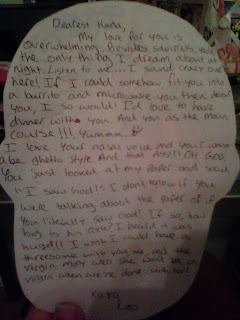 Dearest Kona,
My love for you is
overwhelming. Besides squirrels, you're
the only thing I dream about at
night. Listen to me... I sound crazy over
here! If I could somehow fit you into
a burrito and microwave you then devour
you, I so would! I'd love to have
dinner with you. And you as the main
course!!! Yummm..
I love your nasal voice and your wanna
be ghetto style. And that Ass!! Oh GEO,
You just looked at my Paper and said
"I saw God!" I don't know if you
were talking about the paper or if
you literally saw God! If so, how
big is his axe? I heard it was
huge!!! I wish I could have a
threesome with you, me, and the
virgin mary. Well she won't be a
virgin when we're done with her!
XOXO